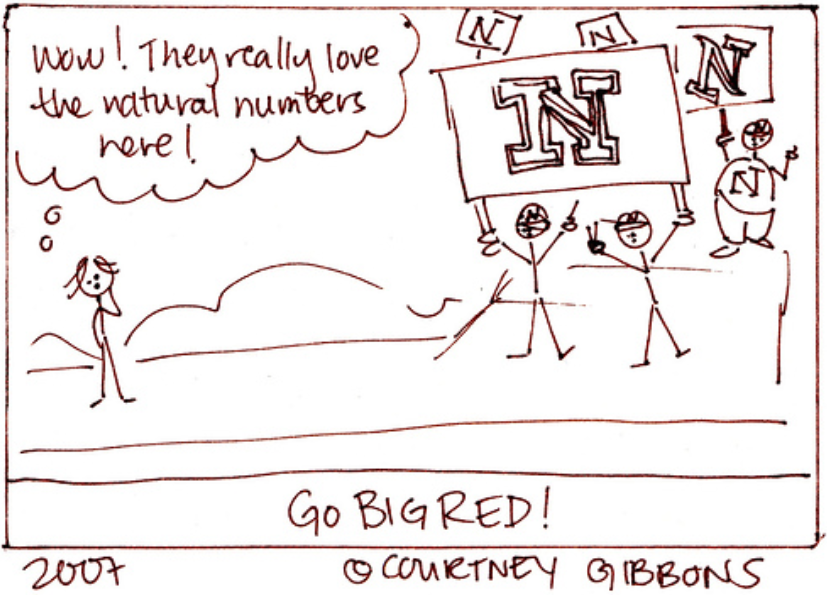 Wow! They really love
the natural numbers
here!
N
N
N
N
N
N
N
GO BIG RED!
2007
© COURTNEY GIBBONS